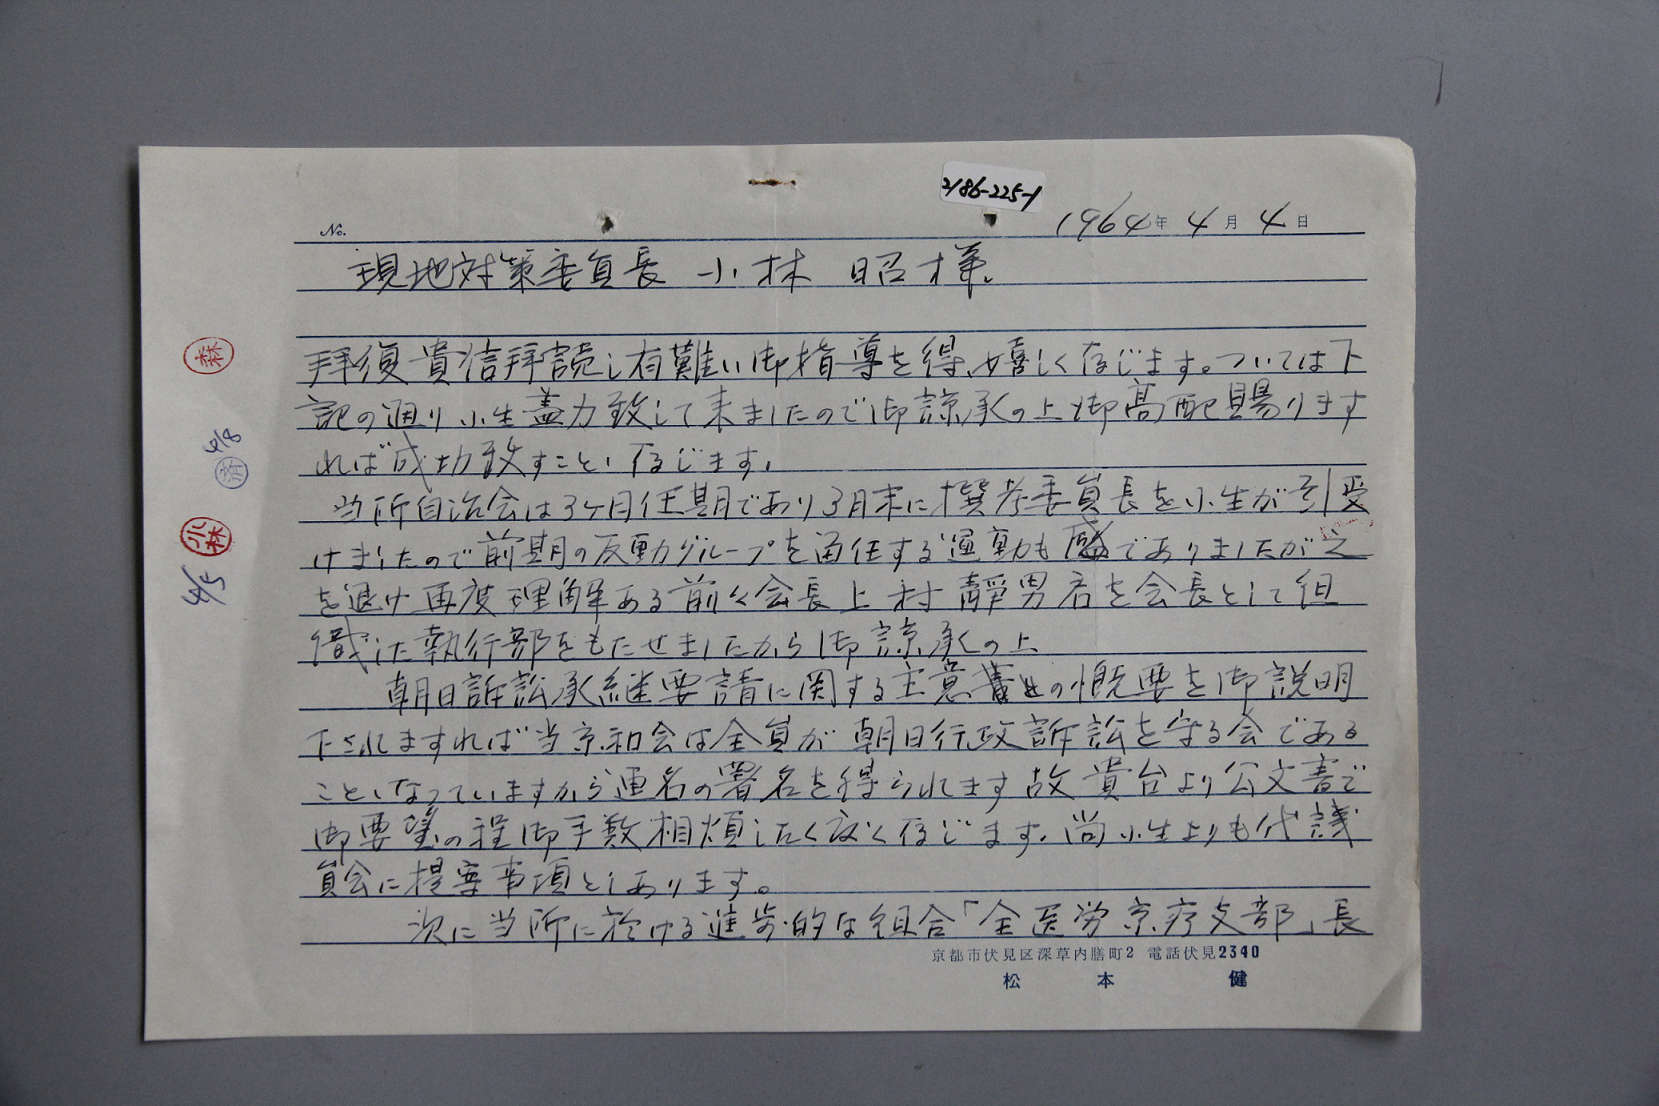 2186-225-1
No.
1964年 4月 4日
現地対策委員長 小林 昭様.
拝復貴信拝読し有難い御指導を得、嬉しく存じます。ついては下
記の通り小生盡力致して来ましたので御諒承の上御高配賜ります
れば成功致すことゝ存じます.
当所自治会は3ヶ月任期であり3月末に撰考委員長を小生が引受
けましたので前期の反動グループを 任する運動も盛でありましたが之
を退け再度理解ある前々会長上村靜男君を会長として組
織した執行部をもたせましたから御諒承の上
朝日訴訟承継要請に関する主意書 の慨要を御説明
下されますれば当京和会は全員が朝日行政訴訟を守る会である
ことゝなっていますから連名の署名を得られます故貴台より公文書で
御要望の程御手数相煩したく 存じます.尚小生よりも代議
員会に提案事項としあります。
次に当所に於ける進歩的な組合「全医労京療支部」長
京都市伏見区深草内膳町2 電話伏見2340
松本健
森
4/8
済
小林
4/5